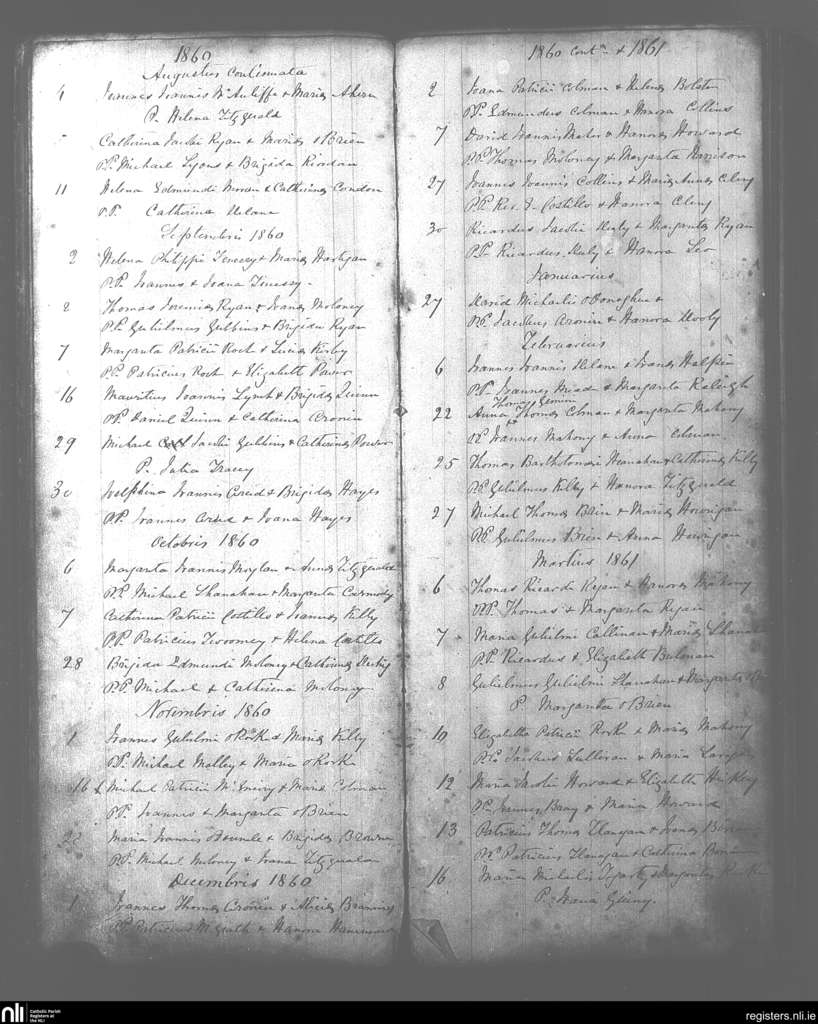 1860
Augustus Continuata
4 Joannes Joannis McAuliffe & Maria Ahern
P. Helena Fitzgerald
Catherina Jacobi Ryan & Maria O Brien
P.P. Michael Lyons & Brigida Riordan
11 Helena Edmundi Moran & Catherina Condon
P.P. Catherina
Septembris 1860
2 Helena Philippi & Maria Hartigan
P.P. Joannes & Joana
2 Thomas Jeremia Ryan & Joana Moloney
P.P. Gulielmus Gubbins & Brigida Ryan
7 Margarita Patricii Roch & Lucia Kirby
P.P. Patricius Roch & Elizabeth Power
16 Mauritius Joannis Lynch & Brigida Quinn
P.P. Daniel Quinn & Catherina Cronin
29 Michael Jacobi Gubbins & Catherina Power
P. Julia Tracey
30 Joannes & Brigida Hayes
P.P. Joannes & Joana Hayes
Octobris 1860
6 Margarita Joannis Moylan & Anna Fitzgerald
P.P. Michael Shanahan & Margarita Carmody
7 Catherina Patricii Costillo & Joanna Kelly
P.P. Patricius Twoomey & Helena Costillo
28 Brigida Edmundi Moloney & Catherina
P.P. Michael & Catherina Moloney
Novembris 1860
1 Joannes Gulielmi O Rorke & Maria Kelly
P.P. Michael Malley & Maria O Rorke
16 Michael Patricii & Maria Colman
P.P. Joannes & Margarita O Brien
22 Maria Joannis & Brigida Browne
P.P. Michael Moloney & Joana Fitzgerald
Decembris 1860
1 Joannes Thoma Cronin & Alicia
P.P. Patricius McGrath & Hanora
1860 Contn. & 1861
2 Joana Patricii Colman & Helena Bolster
P.P. Edmundus Colman & Honora Collins
7 David Joannis & Hanora Howard
P.P. Thomas Moloney & Margarita Harrison
27 Joannes Joannis Collins & Maria Anna Clery
P.P. Rev. Costillo & Hanora Clery
30 Ricardus Jacobi & Margarita Ryan
P.P. Ricardus & Hanora
Januarius
27 David Michaelis O Donoghue &
P.P. Jacobus Cronin & Hanora
Februarius
6 Joannes Joannis & Joana Halpin
P.P. Joannes Mead & Margarita Raleigh
Thomas Gemini
22 Anna & Thoma Colman & Margarita Mahony
P.P. Joannes Mahony & Anna Colman
25 Thomas Bartholomai Shanahan & Catherina Kelly
P.P. Gulielmus Kelly & Hanora Fitzgerald
27 Michael Thoma Brien & Maria Hourigan
P.P. Gulielmus Brien & Anna Hourigan
Martius 1861
6 Thomas Ricardi Ryan & Hanora Mahony
P.P. Thomas & Margarita Ryan
7 Maria Gulielmi Callinan & Maria
P.P. Ricardus & Elizabeth
8 Gulielmus Gulielmi Shanahan & Margarita
P. Margarita O Brien
10 Elizabetha Patricii Rorke & Maria Mahony
P.P. Jacobus Sullivan & Maria
12 Maria Jacobi Howard & Elizabeth
P.P. Joannes Bray & Maria Howard
13 Patricius Thoma Flanagan & Joana
P.P. Patricius Flanagan & Catherina
16 Maria Michaelis Fogarty & Margarita
P. Joana
nli
Catholic Parish
Registers at
the NLI
registers.nli.ie